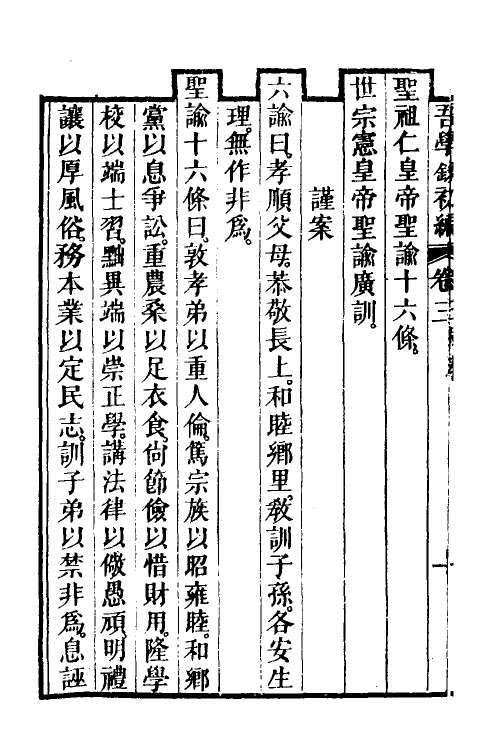 吾學錄初編 卷三
聖祖仁皇帝聖諭十六條。
世宗憲皇帝聖諭廣訓。
謹案
六諭曰。孝順父母。恭敬長上。和睦鄉里。敎訓子孫。各安生
理。無作非爲。
聖諭十六條曰。敦孝弟以重人倫。篤宗族以昭雍睦。和鄉
黨以息爭訟。重農桑以足衣食。尙節儉以惜財用。隆學
校以端士習。黜異端以崇正學。講法律以儆愚頑。明禮
讓以厚風俗。務本業以定民志。訓子弟以禁非爲。息誣